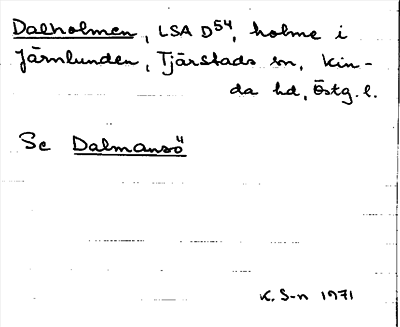 Dalholmen, LSA D54, holme i
Järnlunden, Tjärstads sn, Kin-
da hd, Östg. l.
Se Dalmansö
K. S-n 1971